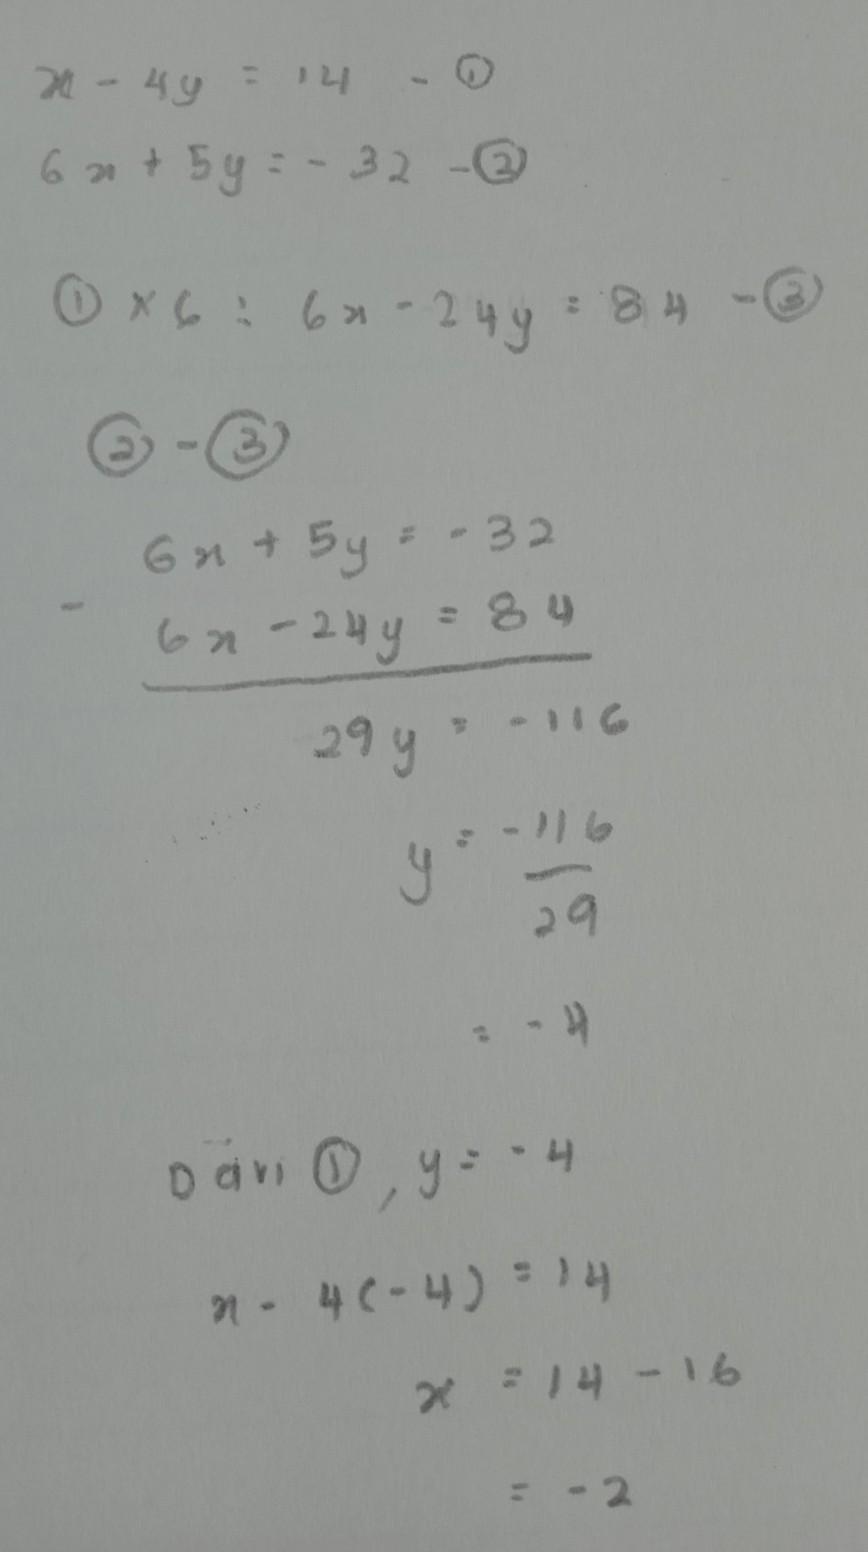 x - 4y = 14 - ①
6x + 5y = - 32 - ②
① × 6 : 6x - 24y = 84 - ③
② - ③
6x + 5y = - 32
- 6x - 24y = 84
29y = - 116
y = - 116
29
= - 4
Dari ①, y = - 4
x - 4(-4) = 14
x = 14 - 16
= - 2